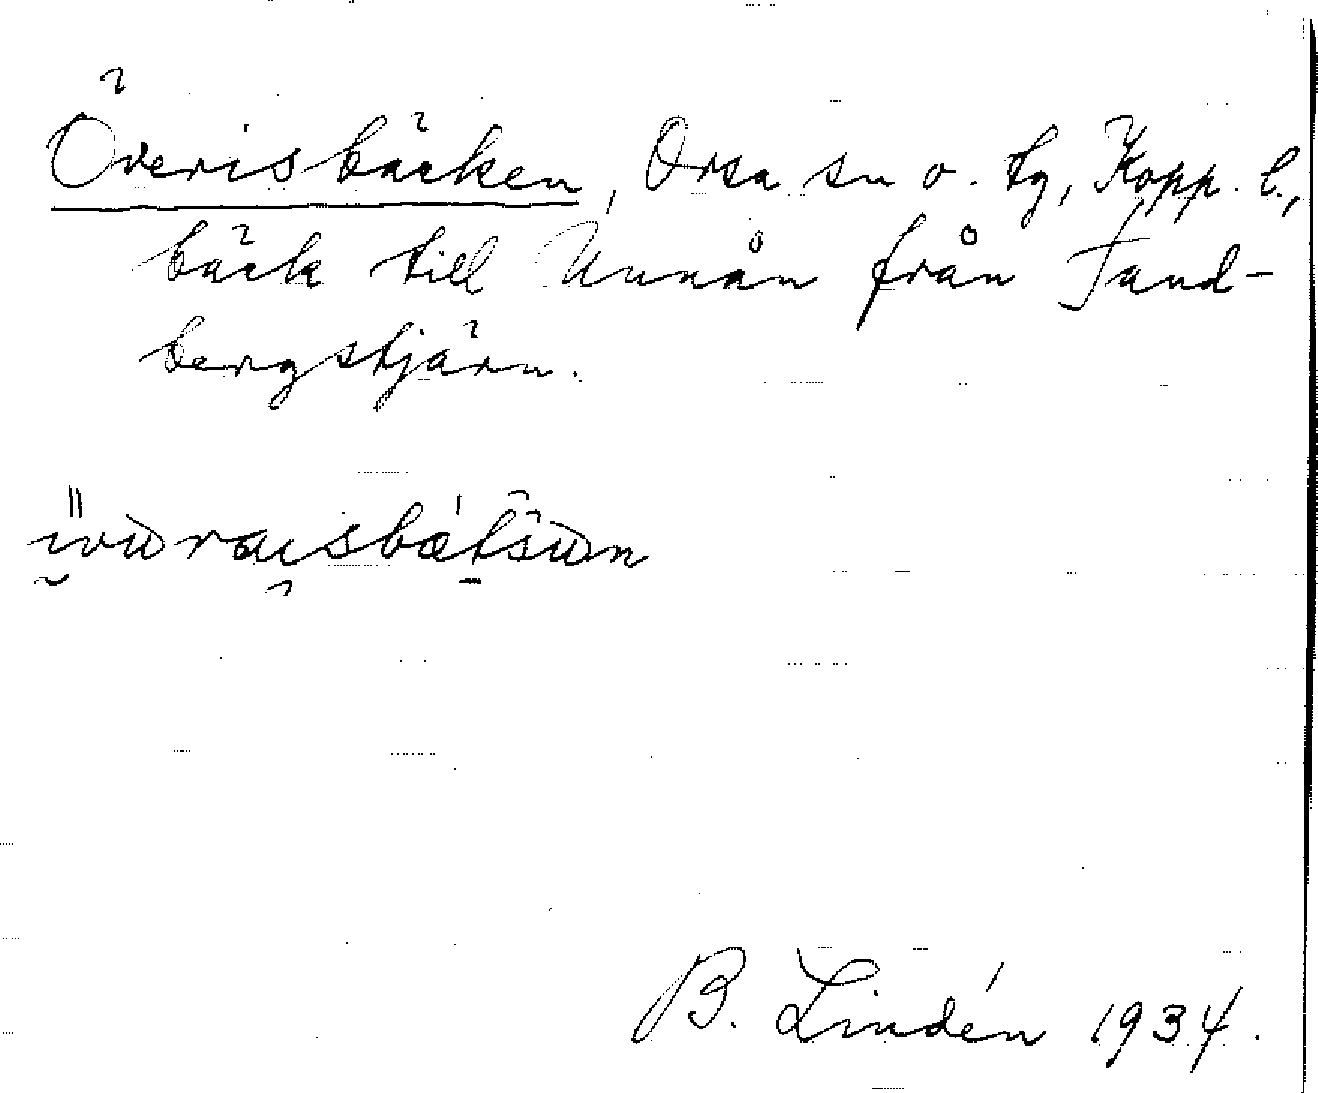 Överisbäcken, Orsa sn o. tg, Kopp. l.,
bäck till Unnån från Tand-
bergstjärn.
B. Lindén 1934.